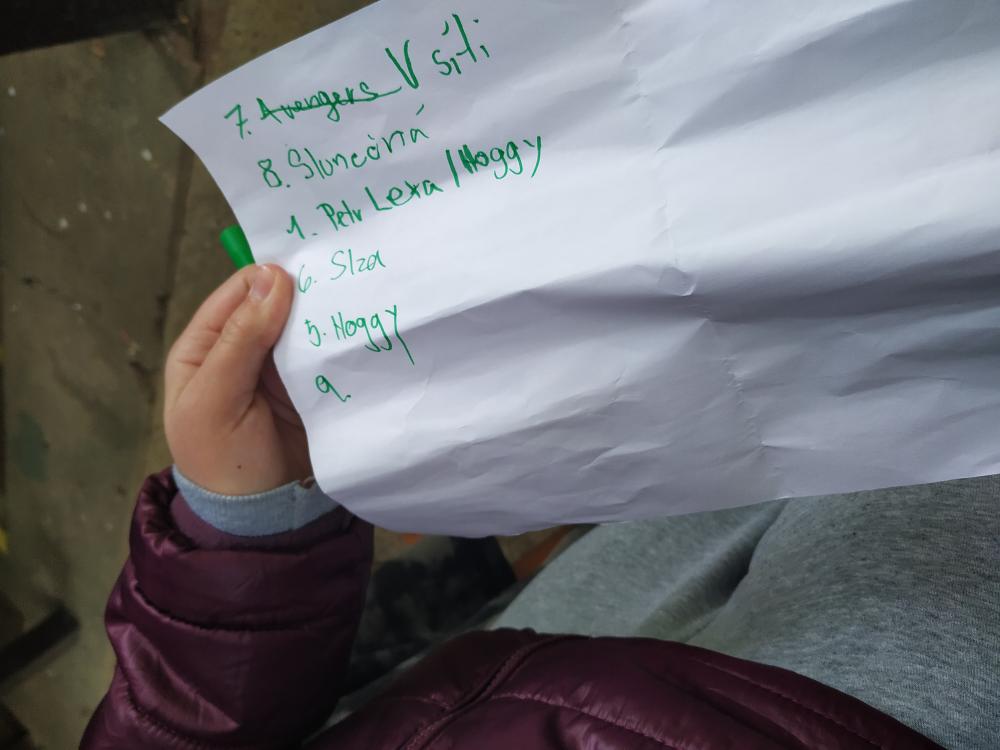 7. Avengers V síti
8. Slunečná
1. Petr Lexa / Hoggy
6. Slza
5. Hoggy
9.